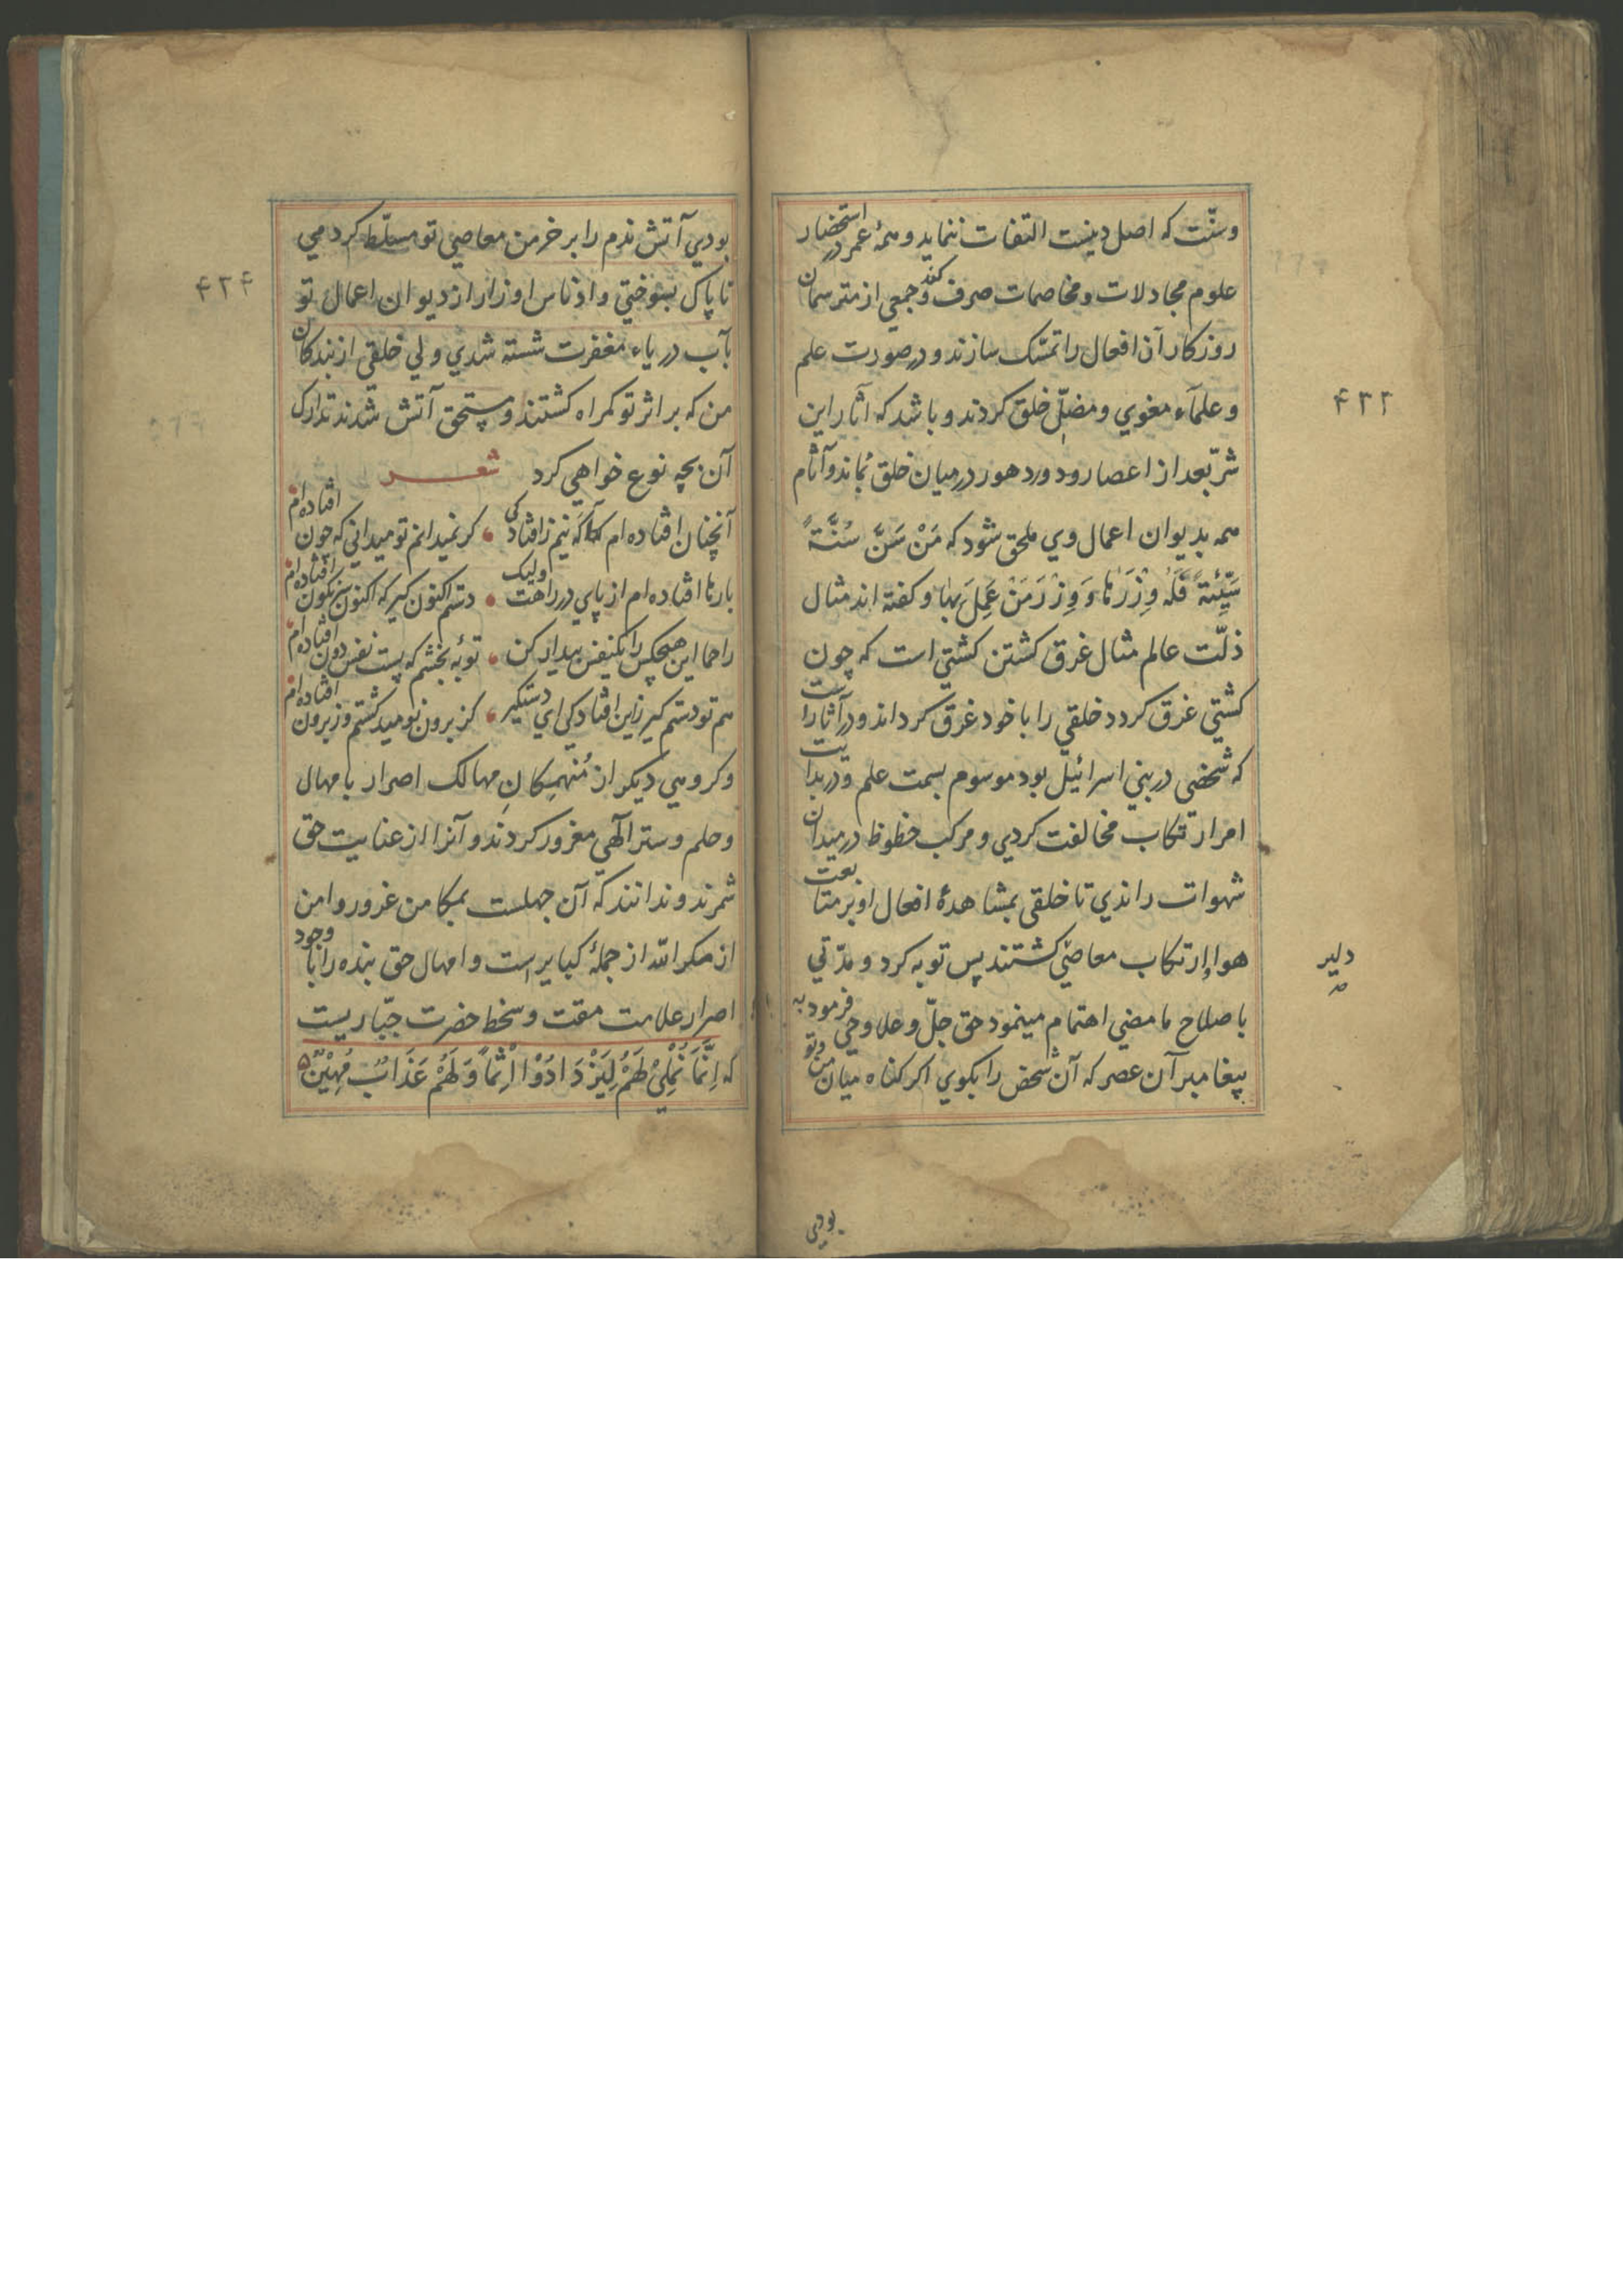 وسنّت که اصل دینست التفات ننماید و همهٔ عمر در استحضار
علوم مجادلات و مخاصمات صرف کند و جمعی از مترسمان
روزکار آن افعال را تمسّک سازند و در صورت علم
و علمآء مغوی و مضلّ خلق کردند و باشد که آثار این
شرّ بعد از اعصار و دور دهور در میان خلق بماند و آثام
همه بدیوان اعمال وی ملحق شود که مَنْ سَنَّ سُنَّةً
سَیِّئَةً فَلَهُ وِزْرَهَا وَ وِزْرَ مَنْ عَمِلَ بِهَا و کفته اند مثال
ذلّت عالم مثال غرق کشتن کشتی است که چون
کشتی غرق کردد خلقی را با خود غرق کرداند و در آثار است
که شخصی در بنی اسرائیل بود موسوم بسمت علم و در بدایت
امر ارتکاب مخالفت کردی و مرکب حظوظ در میدان
شهوات راندی تا خلقی بمشاهدهٔ افعال او بر متابعت
هوا و ارتکاب معاصی کشتند پس توبه کرد و مدّتی
دلیر
باصلاح ما مضی اهتمام مینمود حق جلّ و علا وحی فرمود به
پیغامبر آن عصر که آن شخص را بکوی اکر کناه میان من و تو
بودی
۴۲۳
بودی آتش ندم را بر خرمن معاصی تو مسلّط کردمی
تا پاک بسوختی و ادناس اوزار از دیوان اعمال تو
بآب دریاء مغفرت شسته شدی ولی خلقی از بندکان
من که بر اثر تو کمراه کشتند و مستحق آتش شدند تدارک
آن بچه نوع خواهی کرد شعر
آنچنان افتاده ام که نیم ز افتادکی کر نمیدانم تو میدانی که چون افتاده ام
بارها افتاده ام از پای در راهت ولیک دستم اکنون کیر که اکنون سرنکون افتاده ام
راحما این هیچکس را یکنفس بیدار کن توبهٔ بخشم که پست نفس دون افتاده ام
هم تو دستم کیر زین افتادکی ای دستکیر کز برون نومید کشتم وز برون افتاده ام
و کروهی دیکر از مُنهمِکانِ مهالک اصرار بامهال
و حلم و ستر الهی مغرور کردند و آنرا از عنایت حق
شمرند و ندانند که آن جهلست بمکامن غرور و امن
از مکر الله از جملهٔ کبایر است و امهال حق بنده را با وجود
اصرار علامت مقت و سخط حضرت جبّاریست
که اِنَّمَا نُمْلِیْ لَهُمْ لِیَزْدَادُوْا اِثْمًا وَلَهُمْ عَذَابٌ مُهِیْنٌ
۴۲۴